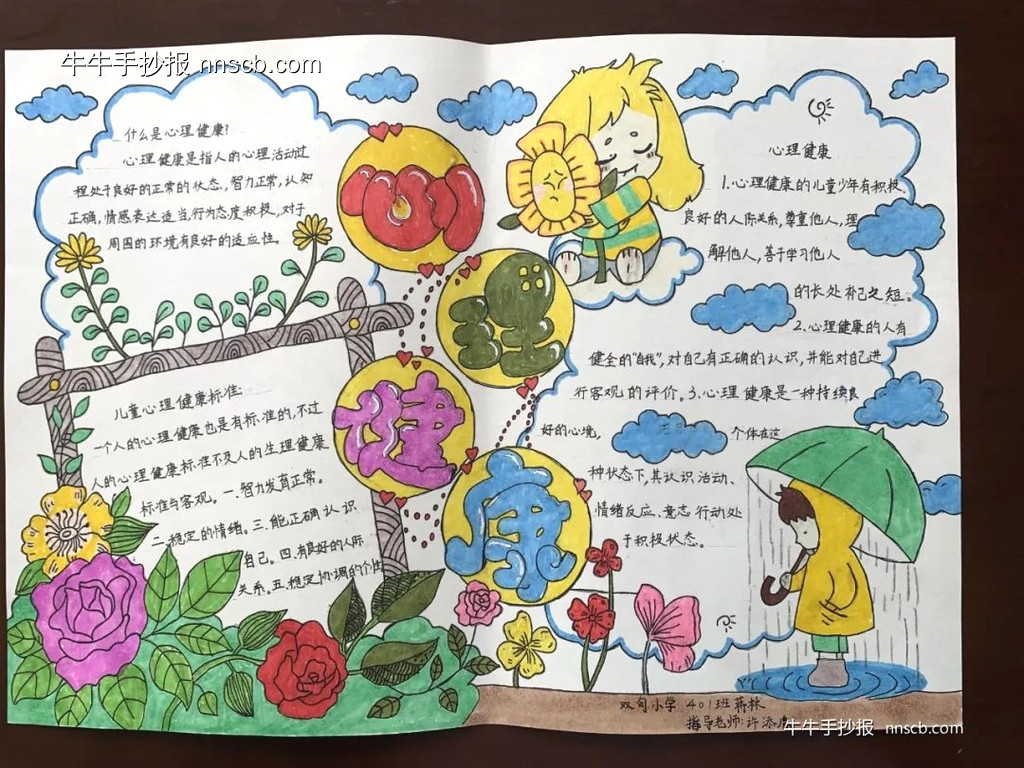 牛牛手抄报 nnscb.com
什么是心理健康?
心理健康是指人的心理活动过
程处于良好的正常的状态,智力正常,认知
正确,情感表达适当,行为态度积极,对于
周围的环境有良好的适应性。
儿童心理健康标准:
一个人的心理健康也是有标准的,不过
人的心理健康标准不及人的生理健康
标准与客观。一.智力发育正常。
二.稳定的情绪。三.能正确认识
自己。四.有良好的人际
关系。五.稳定协调的个性
心
理
健
康
心理健康
1.心理健康的儿童少年有积极、
良好的人际关系,尊重他人,理
解他人,善于学习他人
的长处补己之短。
2.心理健康的人有
健全的"自我",对自己有正确的认识,并能对自己进
行客观的评价。3.心理健康是一种持续良
好的心境, 个体在这
种状态下,其认识活动、
情绪反应、意志行动处
于积极状态。
双旬小学 401班蒋林
指导老师:许添
牛牛手抄报 nnscb.com